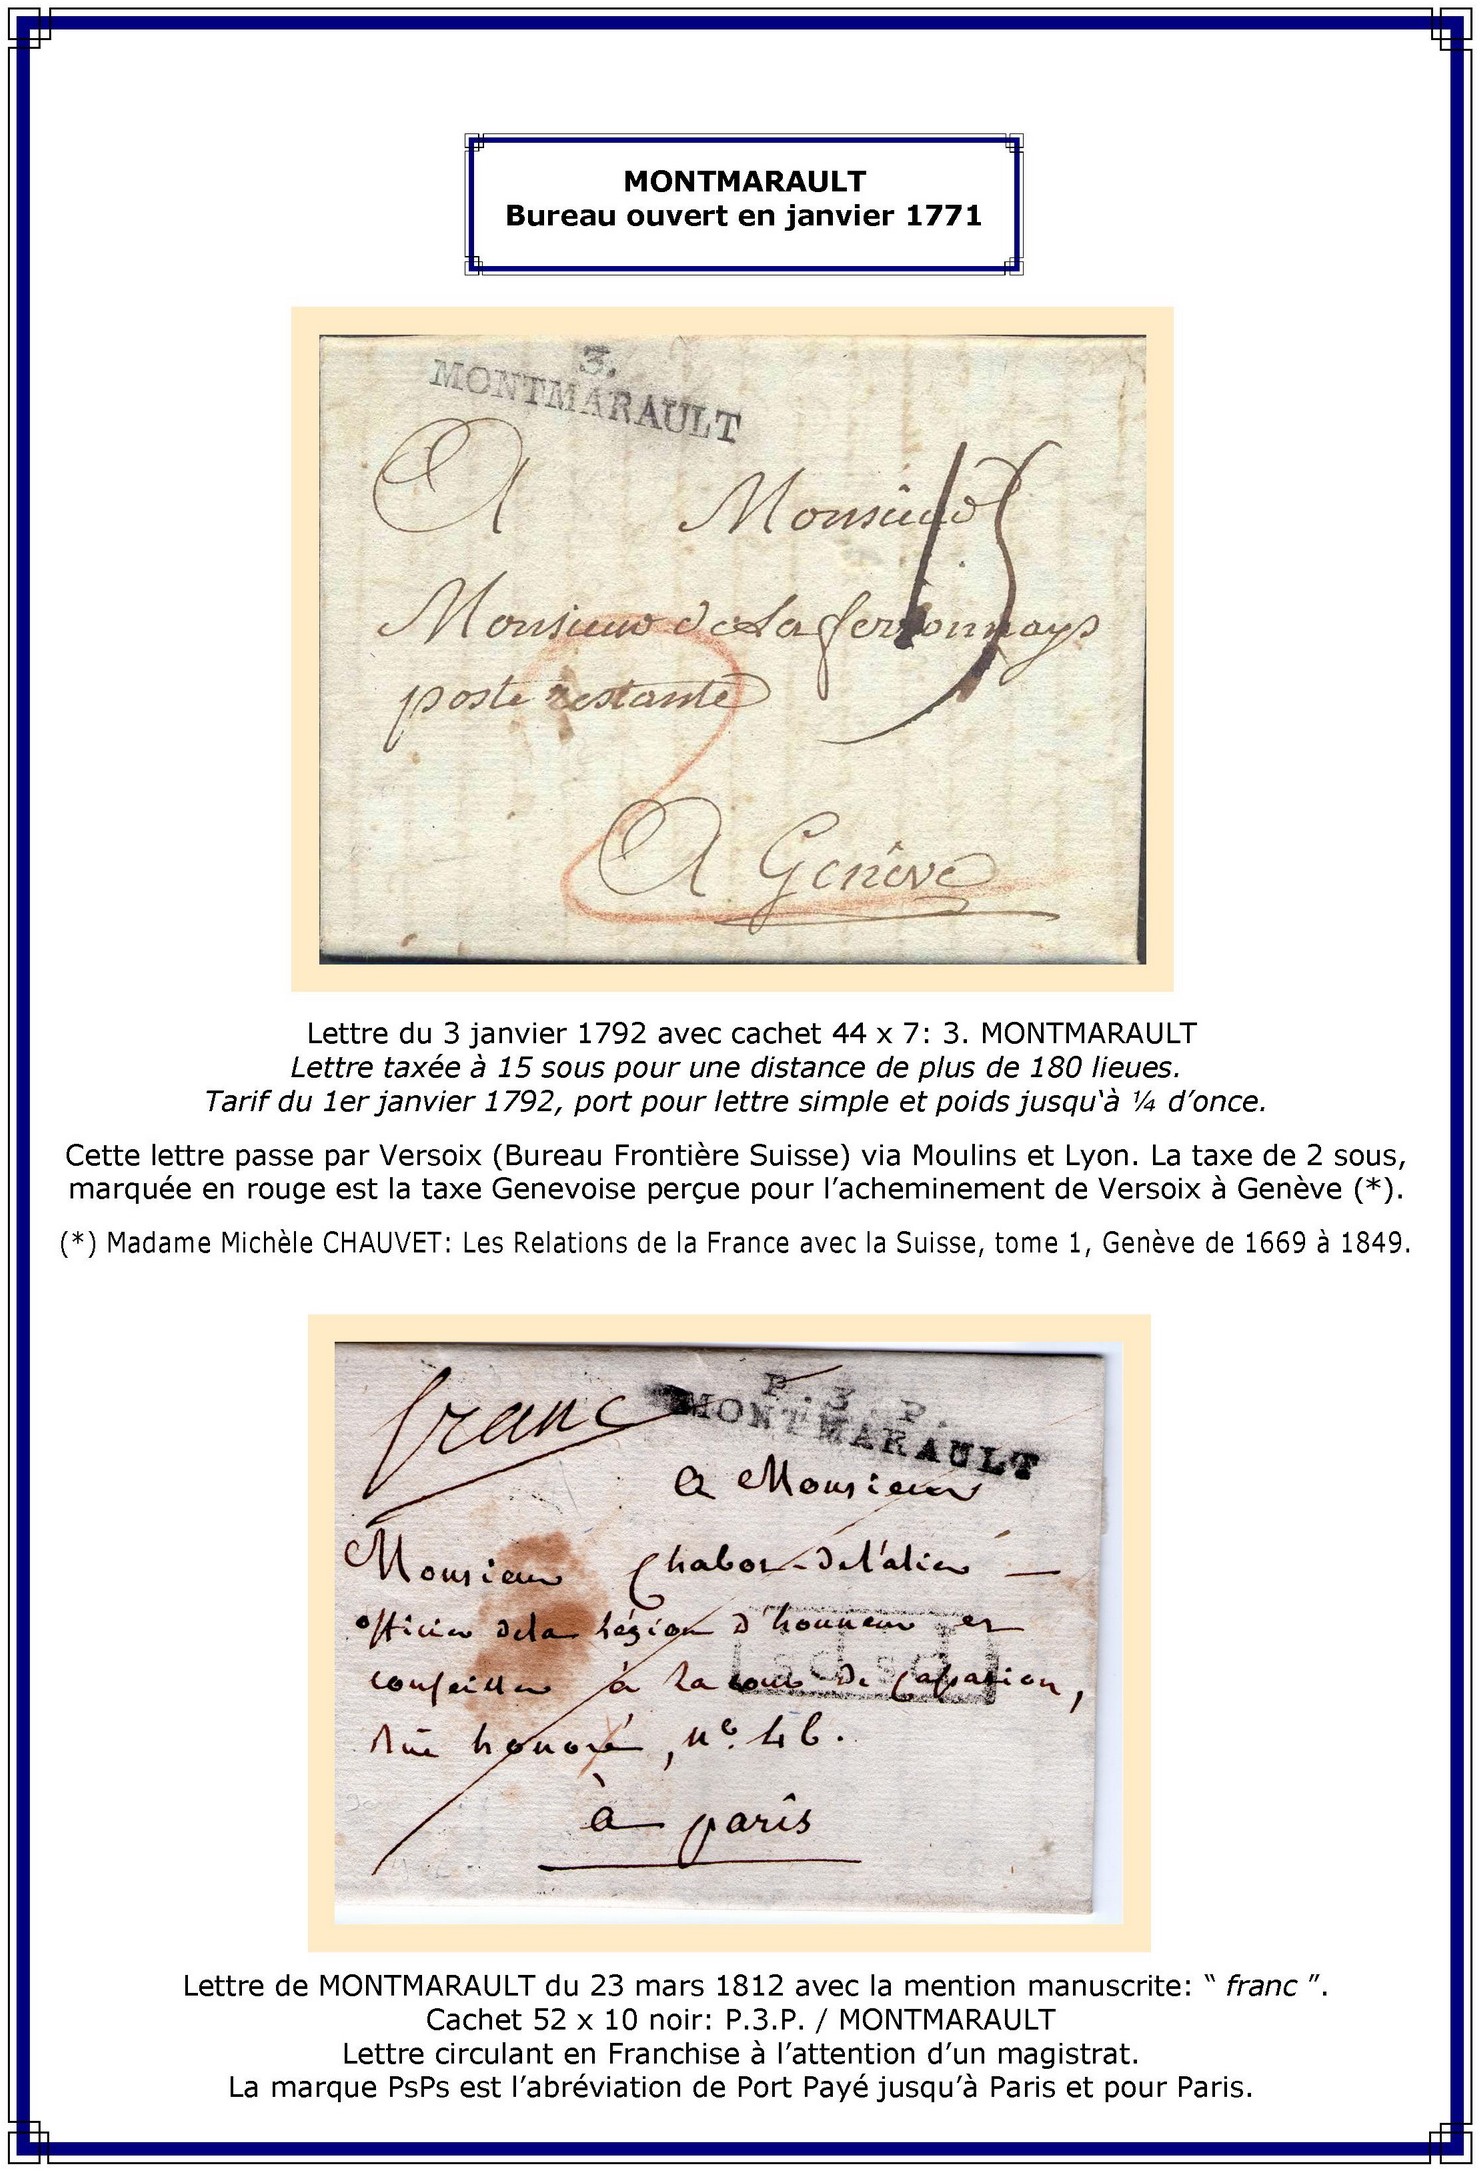 MONTMARAULT
Bureau ouvert en janvier 1771
3.
MONTMARAULT
A Monsieur
15
Monsieur de La ferronnays
poste restante
2
A Genève
Lettre du 3 janvier 1792 avec cachet 44 x 7: 3. MONTMARAULT
Lettre taxée à 15 sous pour une distance de plus de 180 lieues.
Tarif du 1er janvier 1792, port pour lettre simple et poids jusqu‘à ¼ d’once.
Cette lettre passe par Versoix (Bureau Frontière Suisse) via Moulins et Lyon. La taxe de 2 sous,
marquée en rouge est la taxe Genevoise perçue pour l’acheminement de Versoix à Genève (*).
(*) Madame Michèle CHAUVET: Les Relations de la France avec la Suisse, tome 1, Genève de 1669 à 1849.
franc
P. 3. P.
MONTMARAULT
a Monsieur
Monsieur Chabot-de l'alier
officier de la légion d'honneur et
conseiller à la cour de cassation,
rüe honoré, n° 46.
à parîs
Lettre de MONTMARAULT du 23 mars 1812 avec la mention manuscrite: “ franc ”.
Cachet 52 x 10 noir: P.3.P. / MONTMARAULT
Lettre circulant en Franchise à l’attention d’un magistrat.
La marque PsPs est l’abréviation de Port Payé jusqu’à Paris et pour Paris.